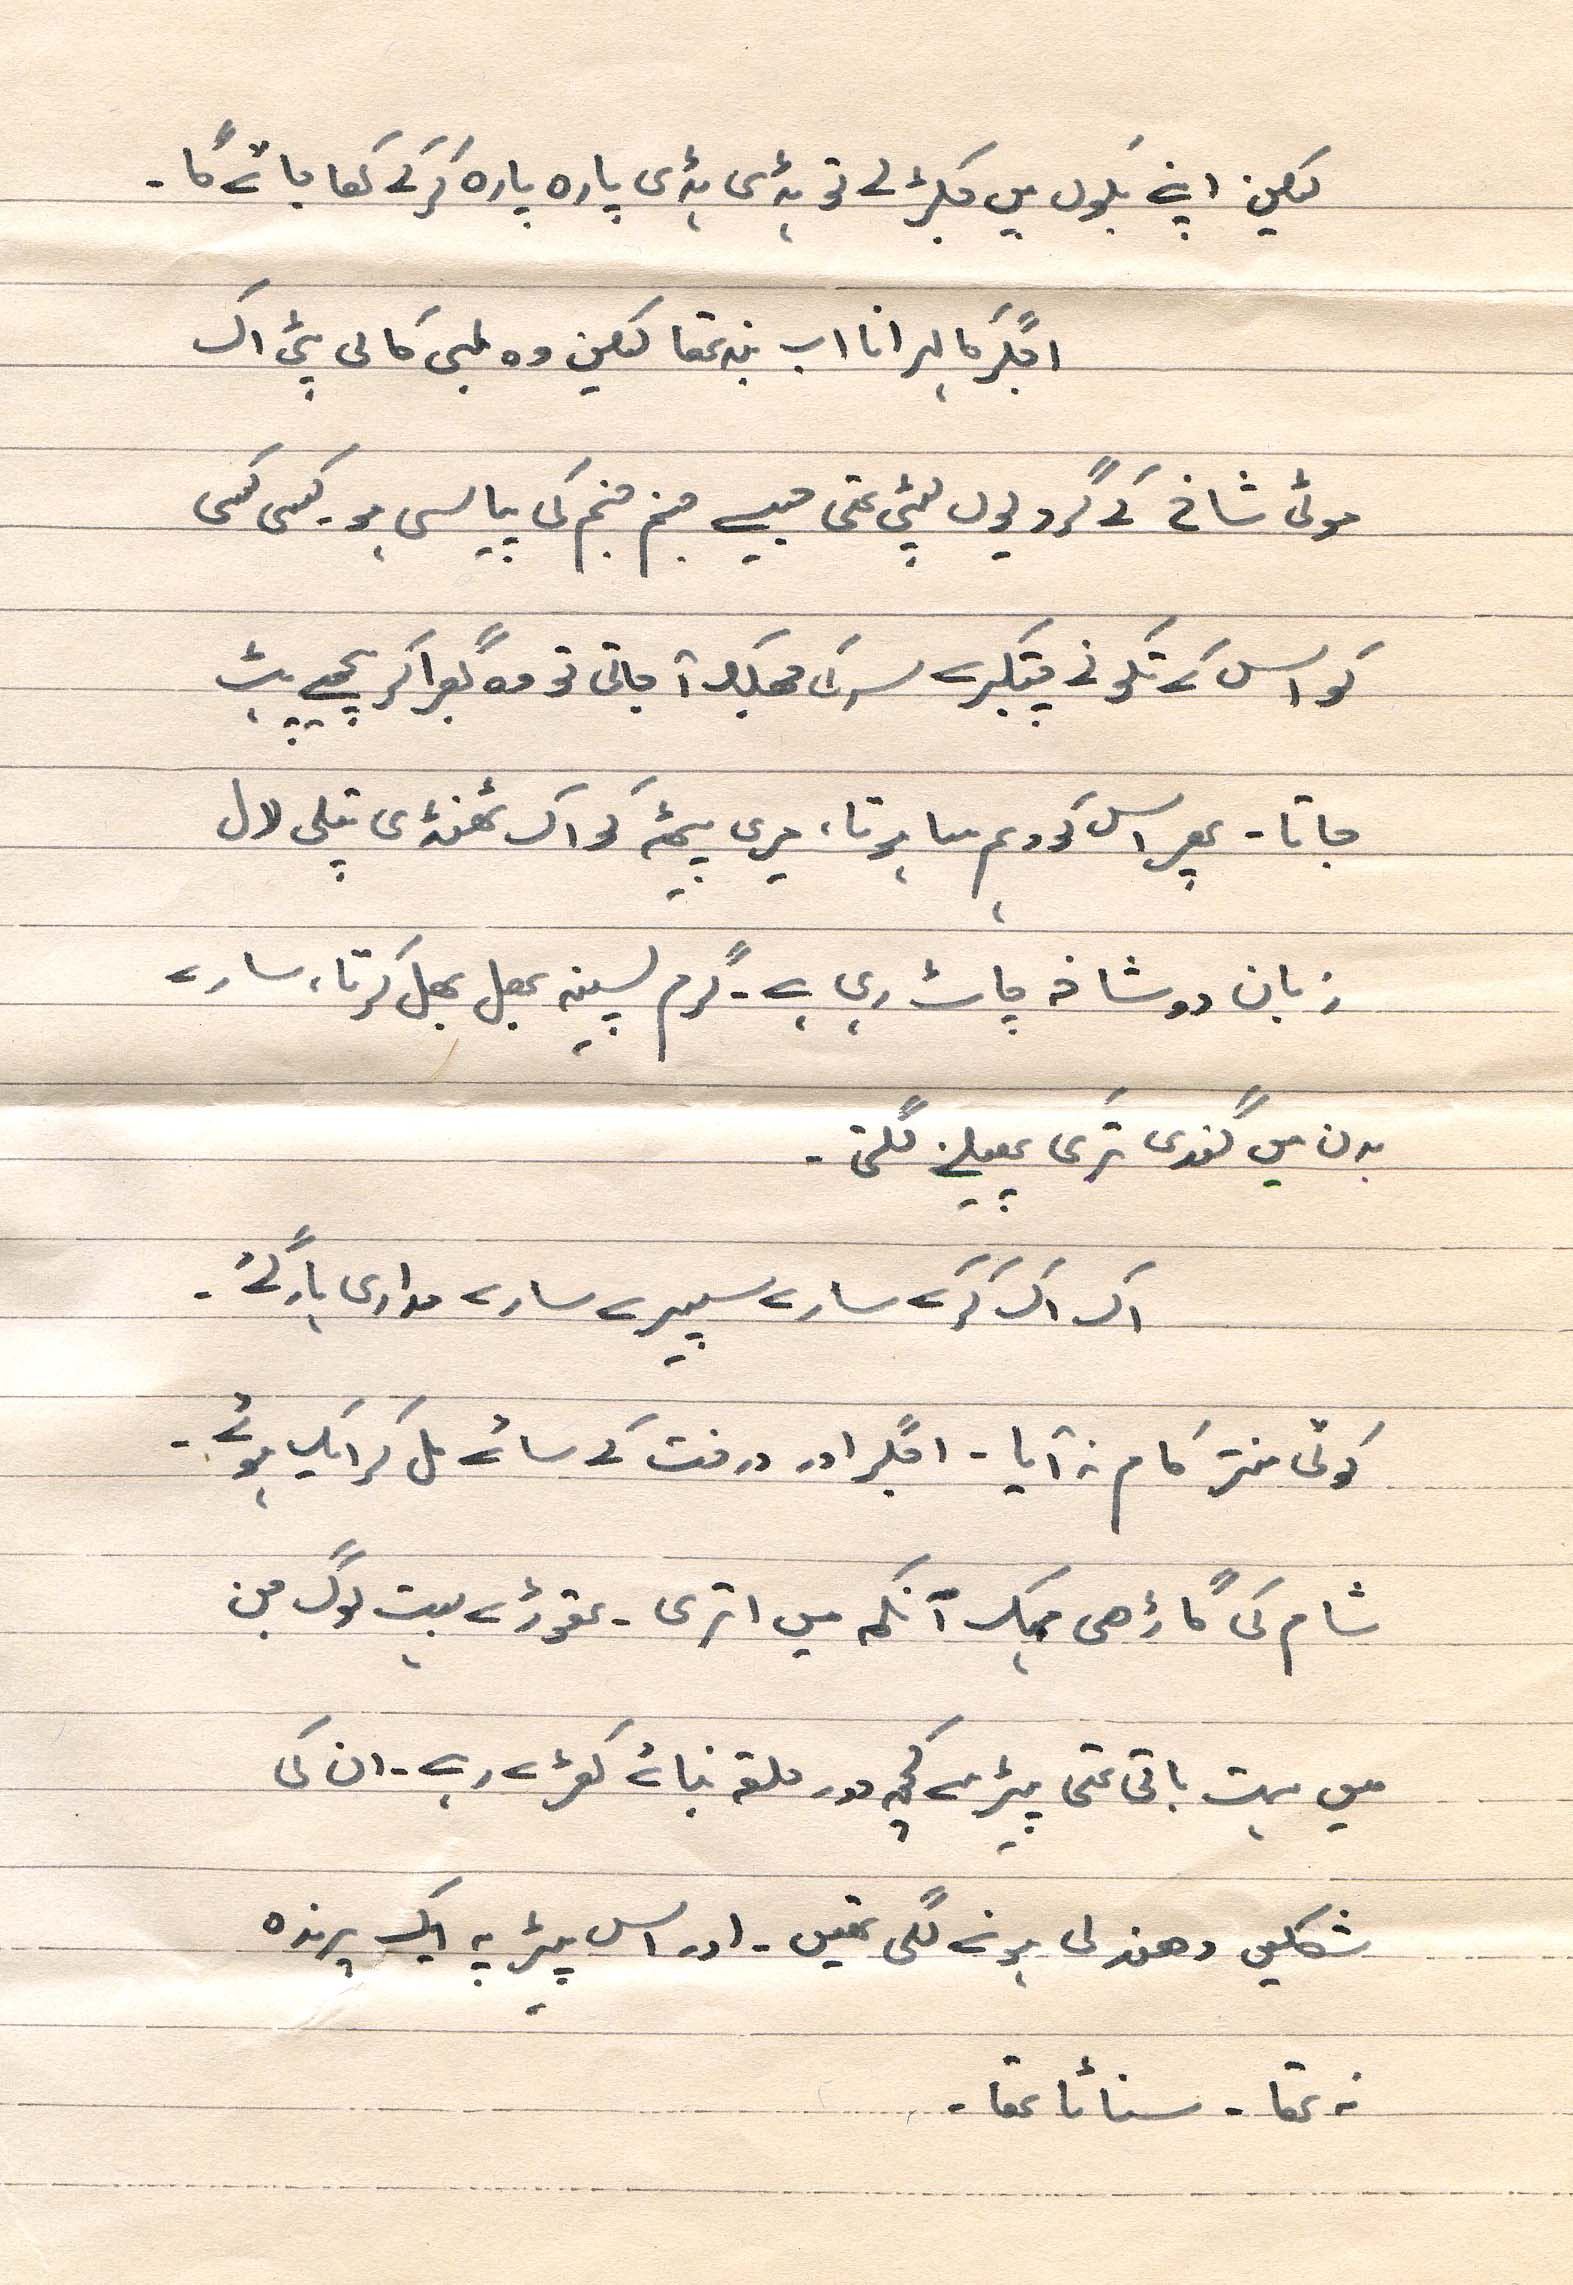 لیکن اپنے بلوں میں جکڑ لے تو ہڈی ہڈی پارہ پارہ کر کے کھا جائے گا۔
اجگر کا لہرانا اب بند تھا لیکن وہ لمبی کالی پٹی اک
موٹی شاخ کے گرد یوں لپٹی تھی جیسے جنم جنم کی پیاسی ہو۔ کسی کسی
کو اس کے تکونے چتکبرے سر کی جھلک آ جاتی تو وہ گھبرا کر پیچھے ہٹ
جاتا۔ پھر اس کو وہم سا ہوتا، میری پیٹھ کو اک ٹھنڈی پتلی لال
زبان دو شاخہ چاٹ رہی ہے۔ گرم پسینہ بھل بھل کرتا، سارے
بدن میں گندی تری پھیلنے لگتی۔
اک اک کر کے سارے سپیرے سارے مداری ہار گئے۔
کوئی منتر کام نہ آیا۔ اجگر اور درخت کے سائے مل کر ایک ہوئے۔
شام کی گاڑھی مہک آنکھ میں اتری۔ تھوڑے بہت لوگ جن
میں ہمت باقی تھی پیڑ سے کچھ دور حلقہ بنائے کھڑے رہے۔ ان کی
شکلیں دھندلی ہونے لگی تھیں۔ اور اس پیڑ پہ ایک پرندہ
نہ تھا۔ سناٹا تھا۔